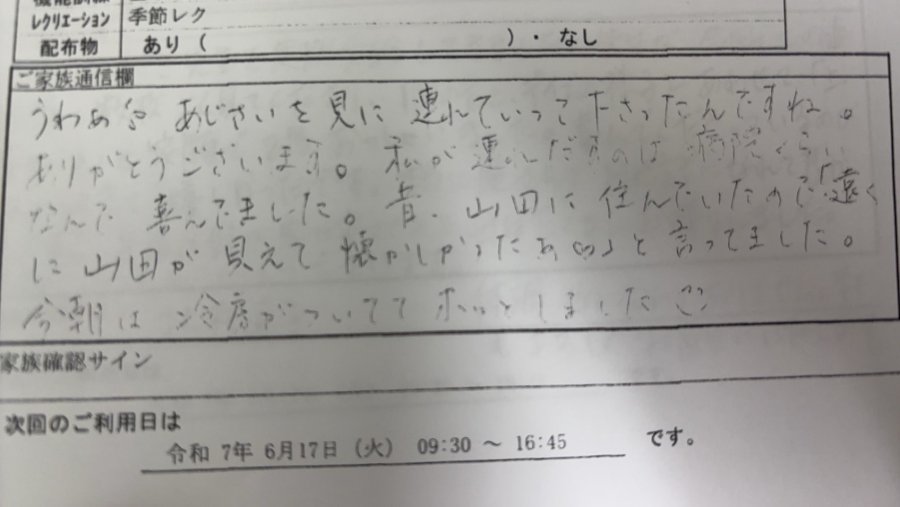 機能訓練
レクリエーション 季節レク
配布物 あり ( )・ なし
ご家族通信欄
うわぁ あじさいを見に連れていって下さったんですね。
ありがとうございます。私が連れだすのは病院くらい
なんで喜んでました。昔、山田に住んでいたので「遠く
に山田が見えて懐かしかったぁ」と言ってました。
今朝は冷房がついててホッとしました
家族確認サイン
次回のご利用日は
令和 7年 6月17日 (火) 09:30 ～ 16:45 です。